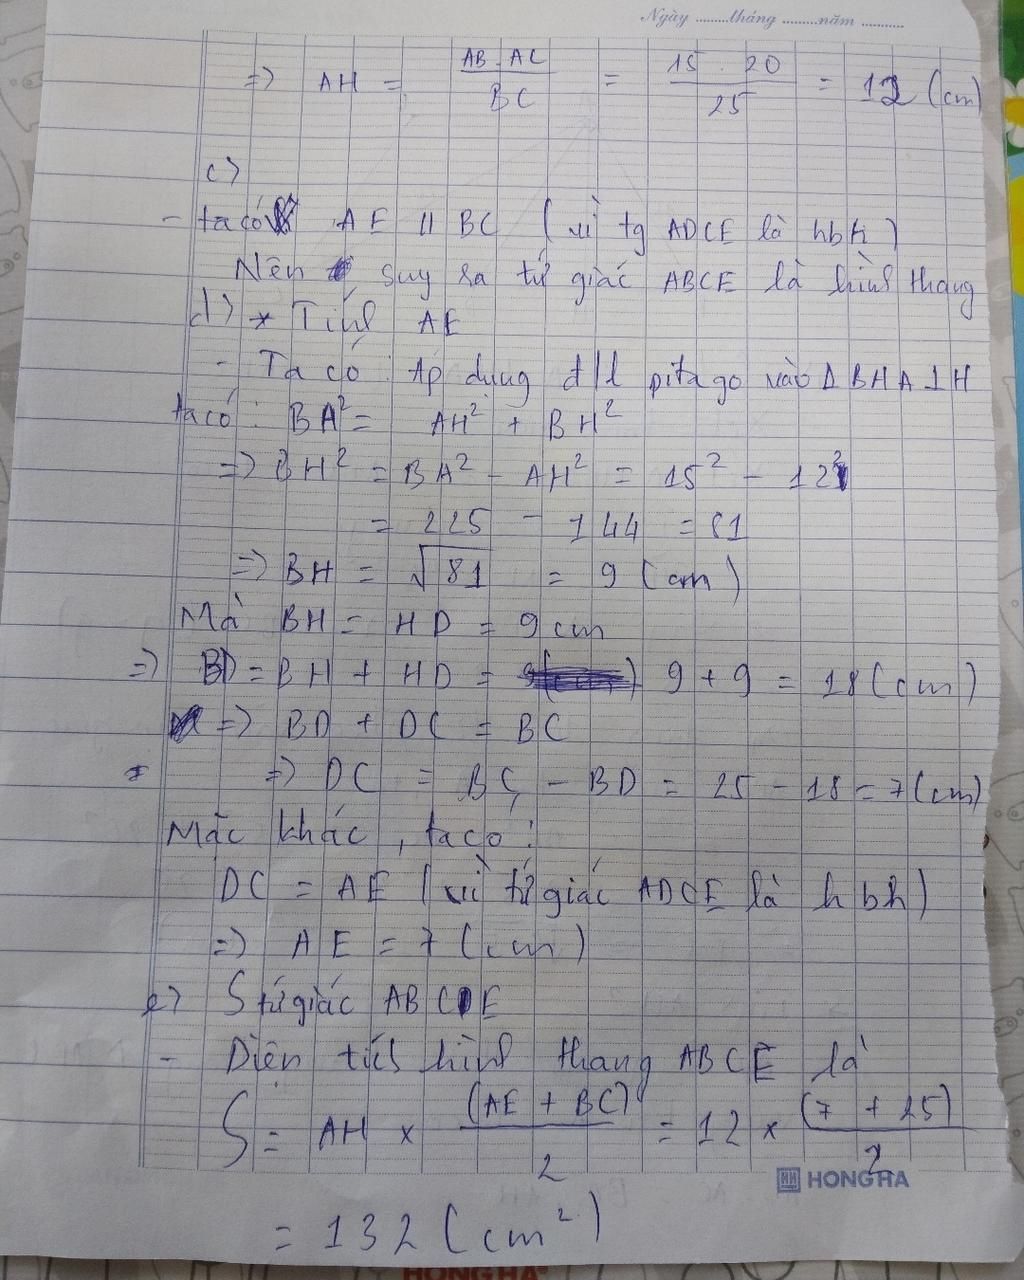 Ngày .........tháng .........năm ...........
=> AH = AB . AC / BC = 15 . 20 / 25 = 12 (cm)
c)
- ta có AE // BC ( vì tg ADCE là hbh )
Nên suy ra tứ giác ABCE là hình thang
d) * Tính AE
- Ta có : Áp dụng đ/l pitago vào Δ BHA ⊥ H
ta có : BA² = AH² + BH²
=> BH² = BA² - AH² = 15² - 12²
= 225 - 144 = 81
=> BH = √81 = 9 (cm)
Mà BH = HD = 9 cm
=> BD = BH + HD = 9 + 9 = 18 (cm)
=> BD + DC = BC
=> DC = BC - BD = 25 - 18 = 7 (cm)
Mặc khác , ta có :
DC = AE ( vì tứ giác ADCE là hbh )
=> AE = 7 (cm)
e) S tứ giác ABCE
- Diện tích hình thang ABCE là
S = AH x (AE + BC) / 2 = 12 x (7 + 25) / 2
HONG HA
= 132 (cm²)
HONG HA